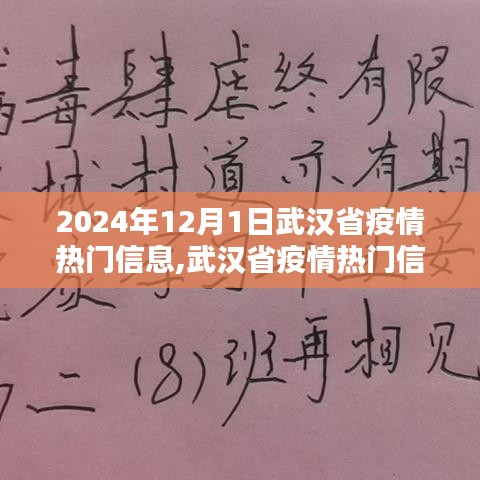 毒肆虐终有限
城封道亦有期
2024年12月1日武汉省疫情
热门信息,武汉省疫情热门信
二(8)班再相见